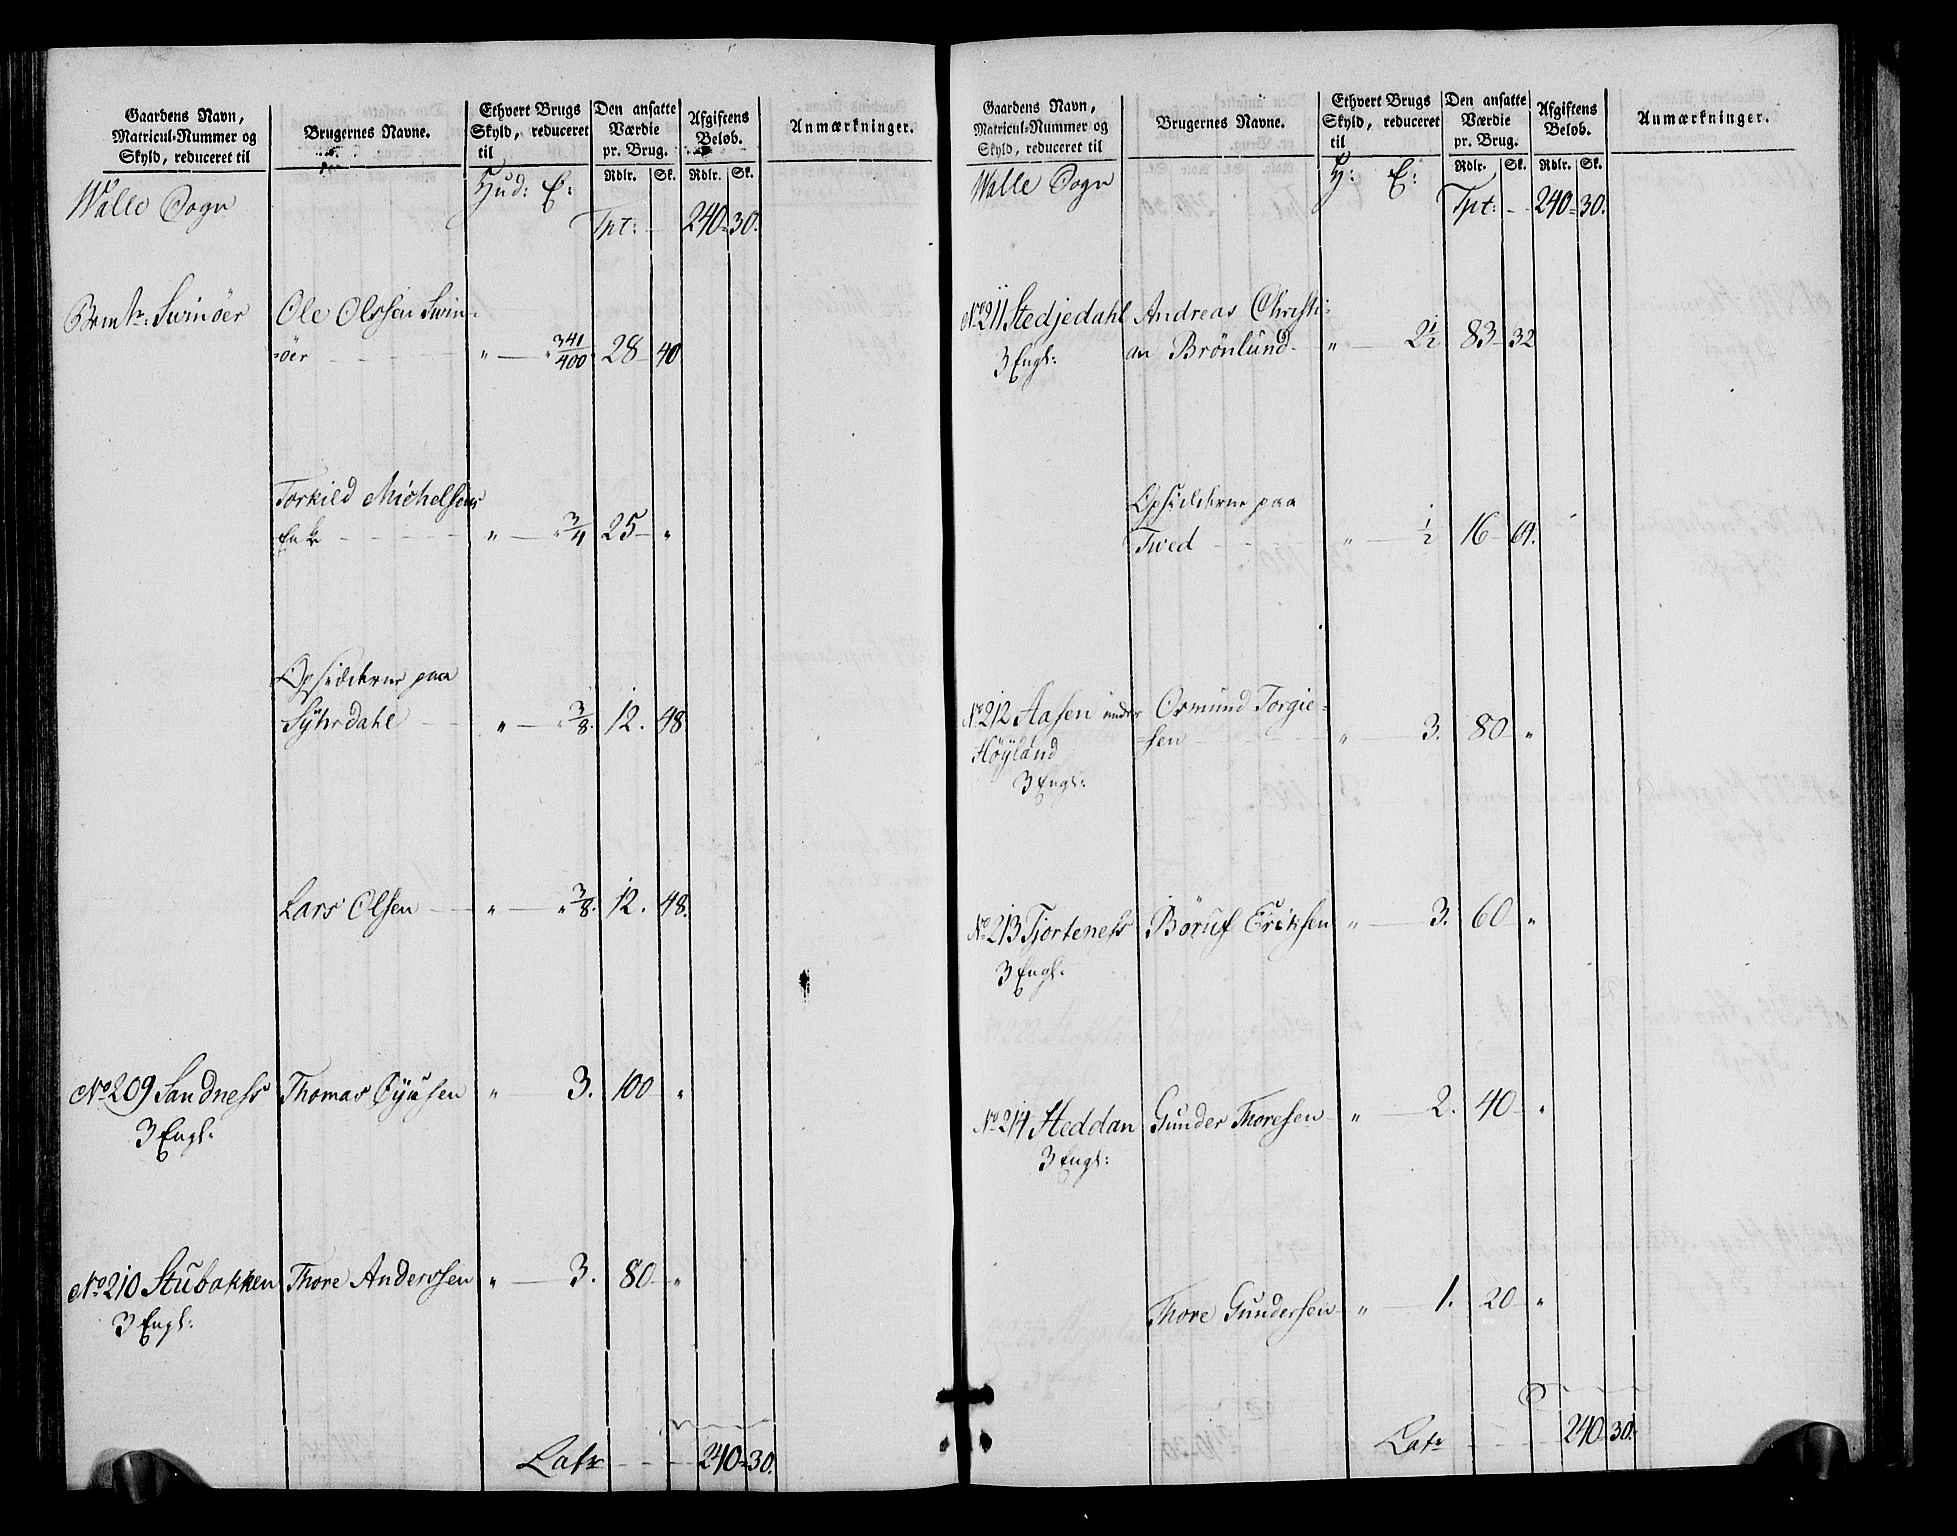 Gaardens Navn,
Matricul-Nummer og
Skyld, reduceret til
Brugernes Navne.
Ethvert Brugs
Skyld, reduceret
til
Den ansatte
Værdie
pr. Brug.
Afgiftens
Beløb.
Anmærkninger.
Rdlr. Sk. Rdlr. Sk.
Walle Sogn Hud: E:
Tpt: 240 30.
Svinöer Ole Olssen Svin-
öer " 341/400 28 40
Torkild Michelsens
Enke " 3/4 25 "
Opsidderne paa
Syhrdahl " 3/8. 12. 48
Lars Olsen " 3/8. 12. 48.
No 209 Sandness Thomas " 3. 100 "
3 Engl:
No 210 Stubakken Thore Anderssen " 3. 80 "
3 Engl:
Lat. 240 30.
Gaardens Navn,
Matricul-Nummer og
Skyld, reduceret til
Brugernes Navne.
Ethvert Brugs
Skyld, reduceret
til
Den ansatte
Værdie
pr. Brug.
Afgiftens
Beløb.
Anmærkninger.
Rdlr. Sk. Rdlr. Sk.
Walle Sogn H: E:
Tpt: 240 30.
No 211 Stedjedahl Andreas Christi-
an Brönlund " 2 1/2 83 32
3 Engl:
Opsidderne paa
Tved " 1/2 16 64.
No 212 Aasen under Osmund Torgie-
Höyland sen " 3. 80 "
3 Engl:
No 213 Tjorteness Böruf Eriksen " 3. 60 "
3 Engl:
No 214 Heddan Gunder Thoresen " 2. 40 "
3 Engl:
Thore Gundersen " 1. 20 "
Lat. 240 30.